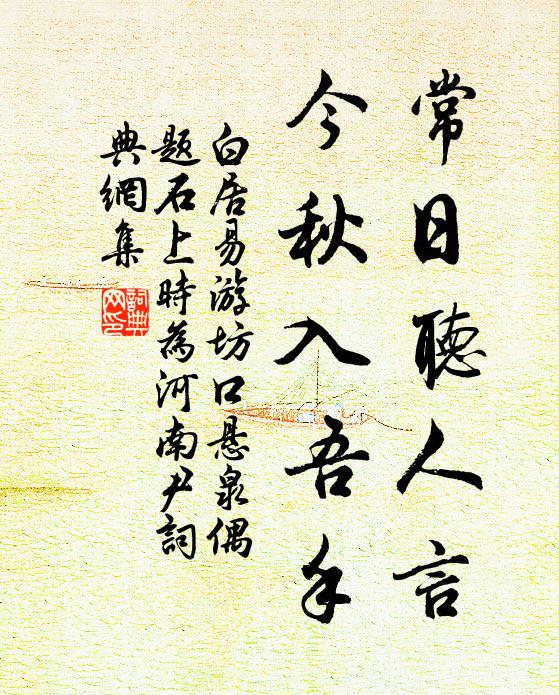 常日聽人言
今秋入吾手
白居易游坊口悬泉偶
题石上時為河南尹詞
典網集
詞典
网印